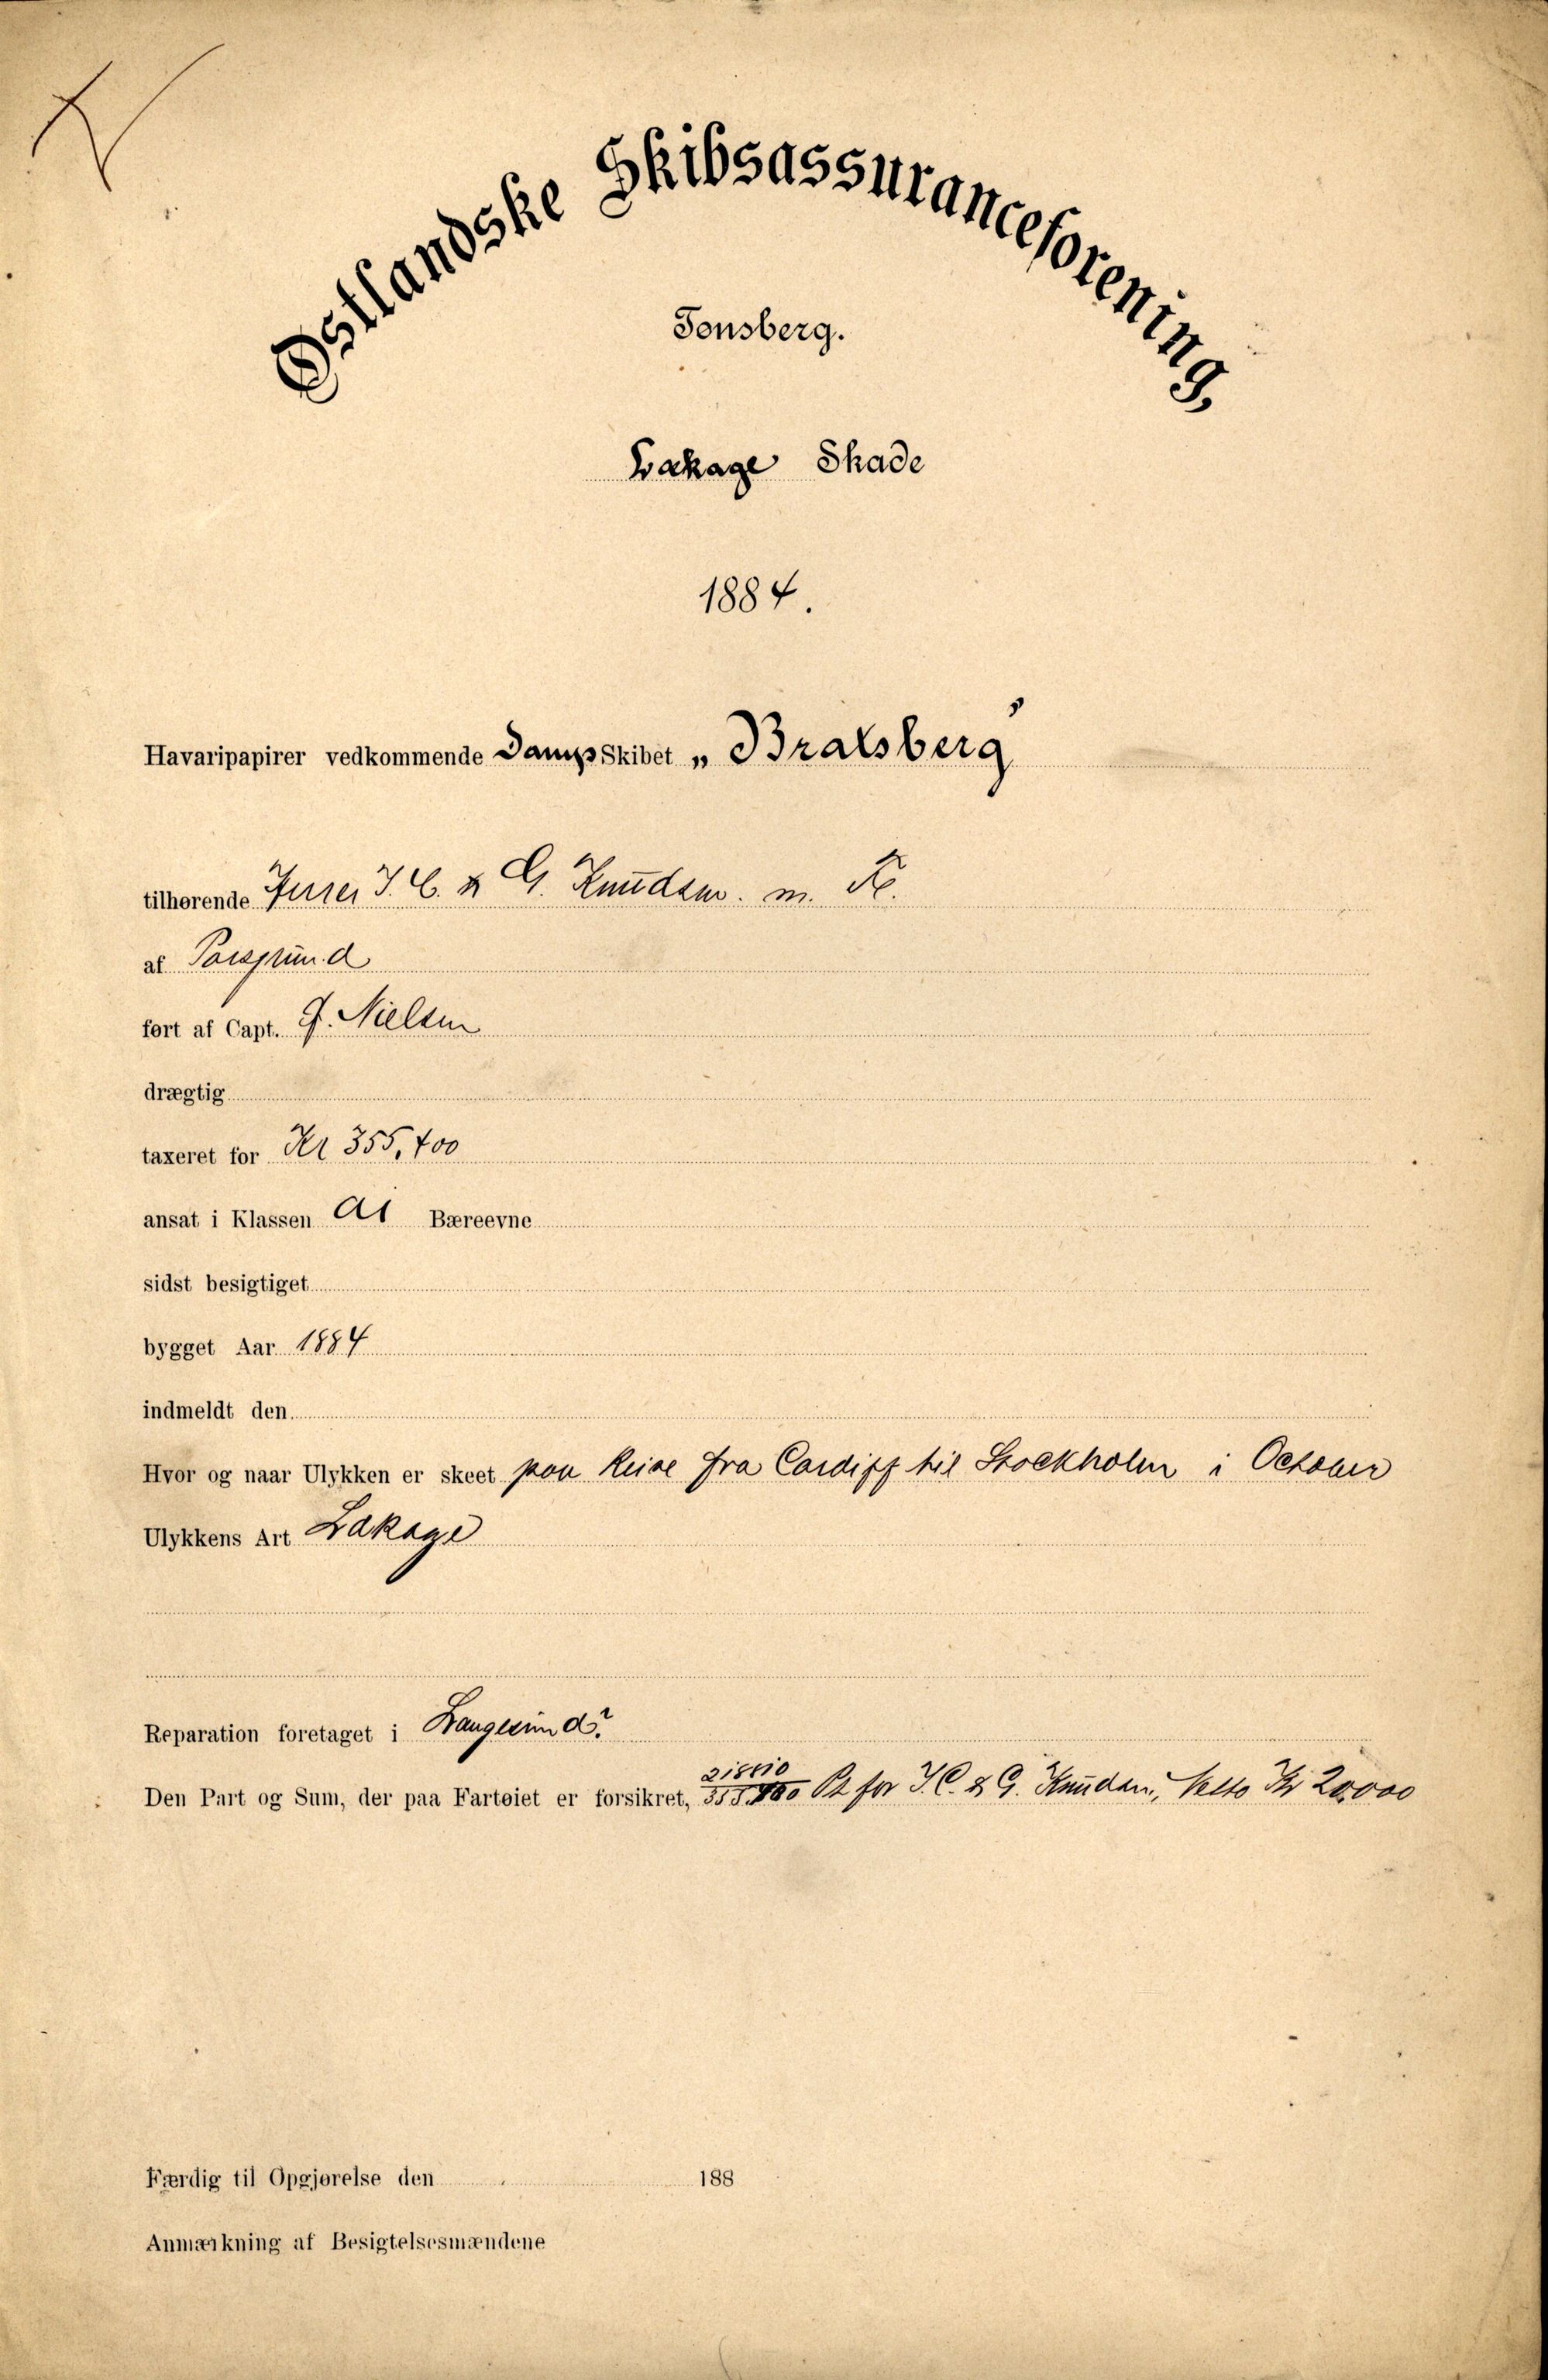 Østlandske Skibsassuranceforening,
Tønsberg.
Lækage Skade
1884.
Havaripapirer vedkommende Dampskibet „Bratsberg“
tilhørende Herrer J. C. & G. Knudsen. m. Fl.
af Porsgrund
ført af Capt. J. Nielsen
drægtig
taxeret for Kr 355,400
ansat i Klassen A1 Bæreevne
sidst besigtiget
bygget Aar 1884
indmeldt den
Hvor og naar Ulykken er skeet paa Reise fra Cardiff til Stockholm i October
Ulykkens Art Lækage
Reparation foretaget i Langesund?
Den Part og Sum, der paa Fartøiet er forsikret, Pt for J. C. & G. Knudsen, Netto Kr 20,000
Færdig til Opgjørelse den 188
Anmærkning af Besigtelsesmændene